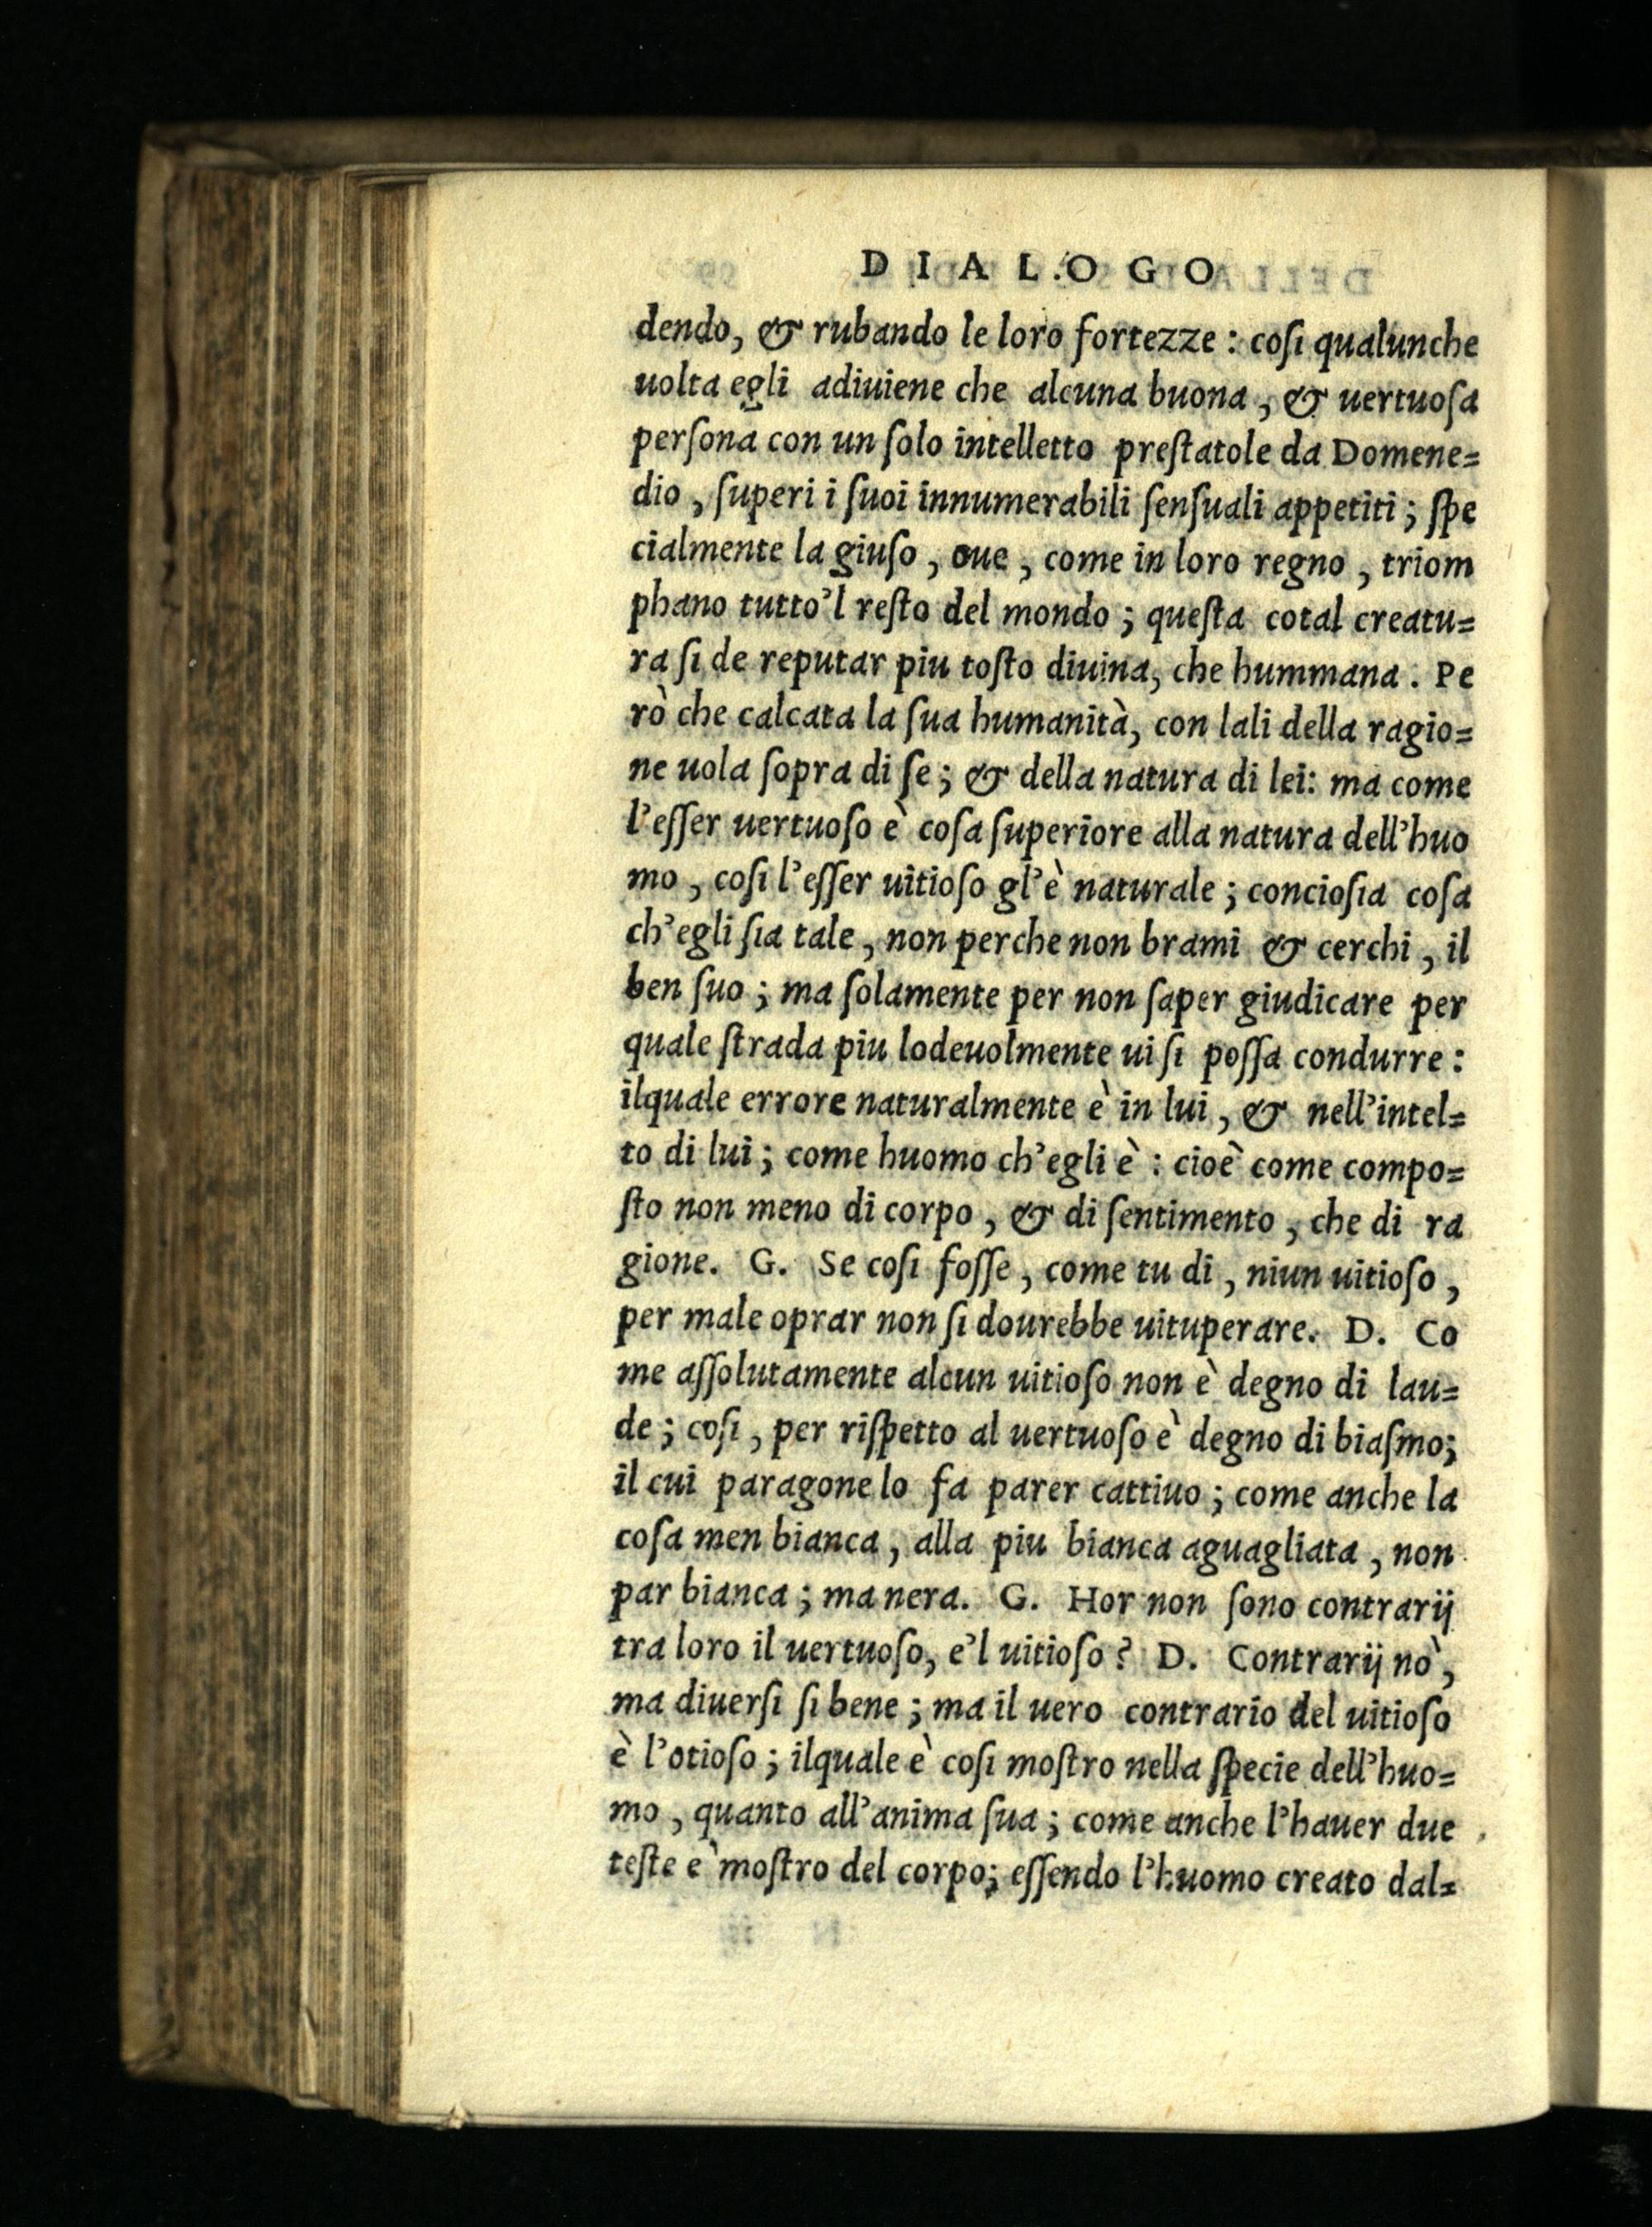 DIALOGO
dendo, & rubando le loro fortezze : coſi qualunche
uolta egli adiuiene che alcuna buona, & uertuoſa
perſona con un ſolo intelletto preſtatole da Domene=
dio, ſuperi i ſuoi innumerabili ſenſuali appetiti ; ſpe
cialmente la giuſo, oue, come in loro regno, triom
phano tutto'l reſto del mondo ; queſta cotal creatu=
ra ſi de reputar piu toſto diuina, che hummana. Pe
rò che calcata la ſua humanità, con lali della ragio=
ne uola ſopra di ſe ; & della natura di lei: ma come
l'eſſer uertuoſo è coſa ſuperiore alla natura dell'huo
mo, coſi l'eſſer uitioſo gl'è naturale ; concioſia coſa
ch'egli ſia tale, non perche non brami & cerchi, il
ben ſuo ; ma ſolamente per non ſaper giudicare per
quale ſtrada piu lodeuolmente ui ſi poſſa condurre :
ilquale errore naturalmente è in lui, & nell'intel=
to di lui ; come huomo ch'egli è : cioè come compo=
ſto non meno di corpo, & di ſentimento, che di ra
gione. G. Se coſi foſſe, come tu di, niun uitioſo,
per male oprar non ſi dourebbe uituperare. D. Co
me aſſolutamente alcun uitioſo non è degno di lau=
de ; coſi, per riſpetto al uertuoſo è degno di biaſmo;
il cui paragone lo fa parer cattiuo ; come anche la
coſa men bianca, alla piu bianca aguagliata, non
par bianca ; ma nera. G. Hor non ſono contrarij
tra loro il uertuoſo, e'l uitioſo? D. Contrarij nò,
ma diuerſi ſi bene ; ma il uero contrario del uitioſo
è l'otioſo ; ilquale è coſi moſtro nella ſpecie dell'huo=
mo, quanto all'anima ſua ; come anche l'hauer due
teſte è moſtro del corpo; eſſendo l'huomo creato dal=